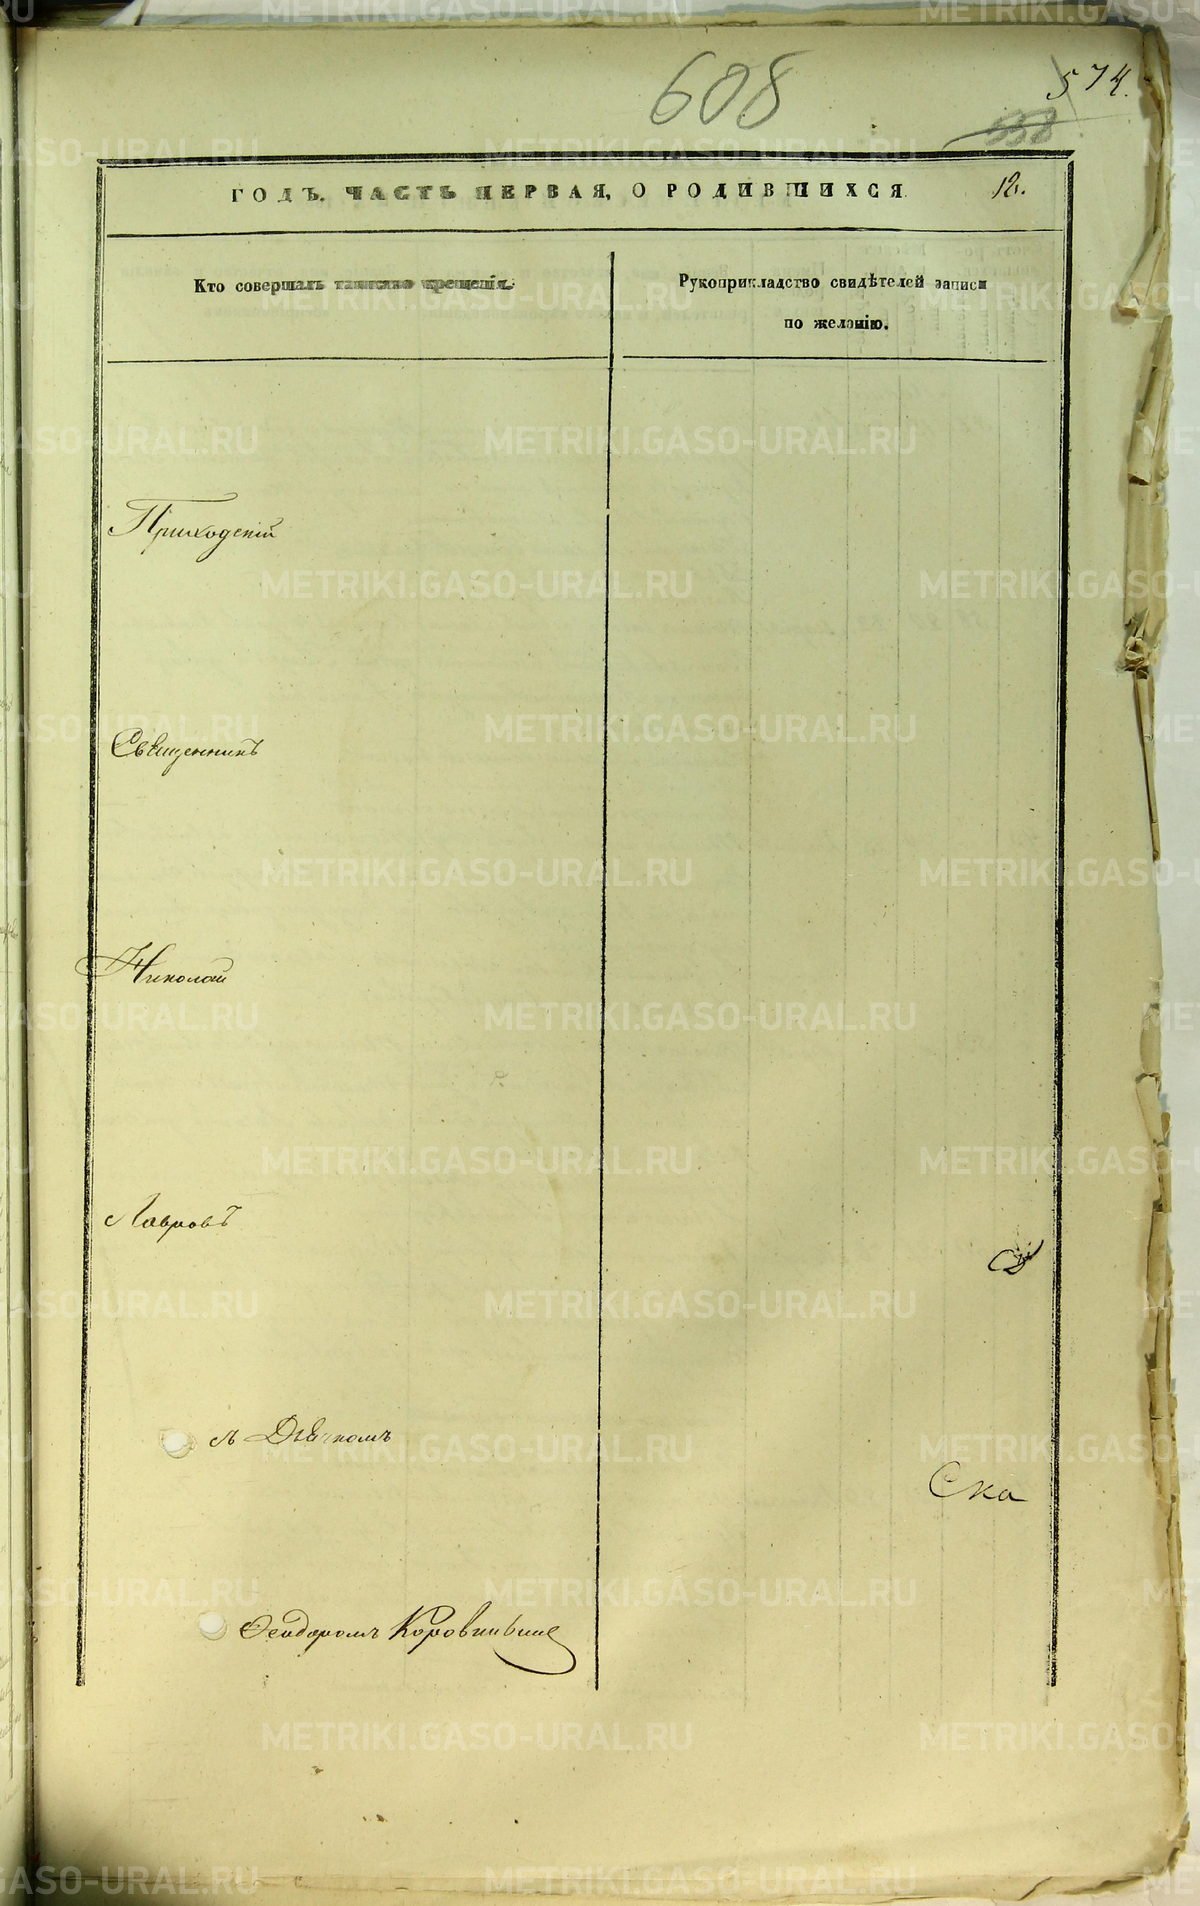 608
574.
538
ГОДЪ. ЧАСТЬ ПЕРВАЯ, О РОДИВШИХСЯ. 12.
Кто совершалъ таинство крещенія.
Рукоприкладство свидѣтелей записи
по желанію.
Приходскій
Священникъ
Николай
Лавровъ
съ Дьячкомъ
Ска
Феодоромъ
METRIKI.GASO-URAL.RU